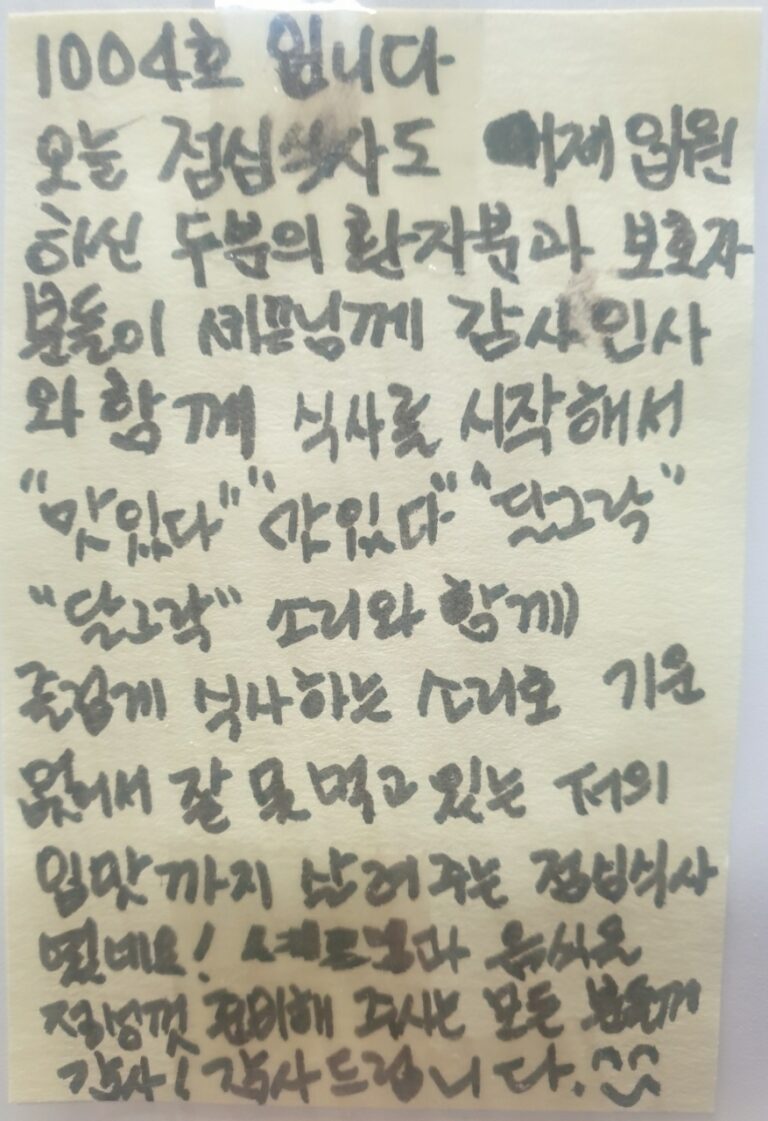 1004호 입니다
오늘 점심식사도 어제 입원
하신 두분의 환자분과 보호자
분들이 셰프님께 감사 인사
와 함께 식사를 시작해서
"맛있다" "맛있다" "달그락"
"달그락" 소리와 함께
즐겁게 식사하는 소리로 기운
없어서 잘 못 먹고 있는 저의
입맛까지 살려주는 점심식사
였네요! 셰프님과 음식을
정성껏 준비해 주시는 모든 분들께
감사! 감사드립니다.^^